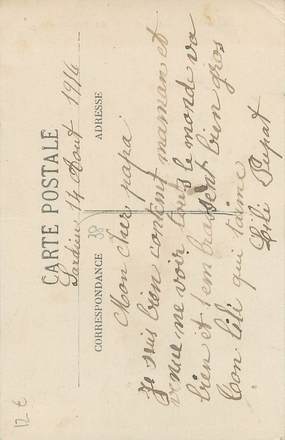 CARTE POSTALE
Sardieu 14 Aout 1914
CORRESPONDANCE
ADRESSE
38
Mon cher papa
Je suis bien content maman et
venue me voir tous le monde va
bien et t'embrassent bien gros
Ton lili qui t'aime
Lili Pepat
12 €